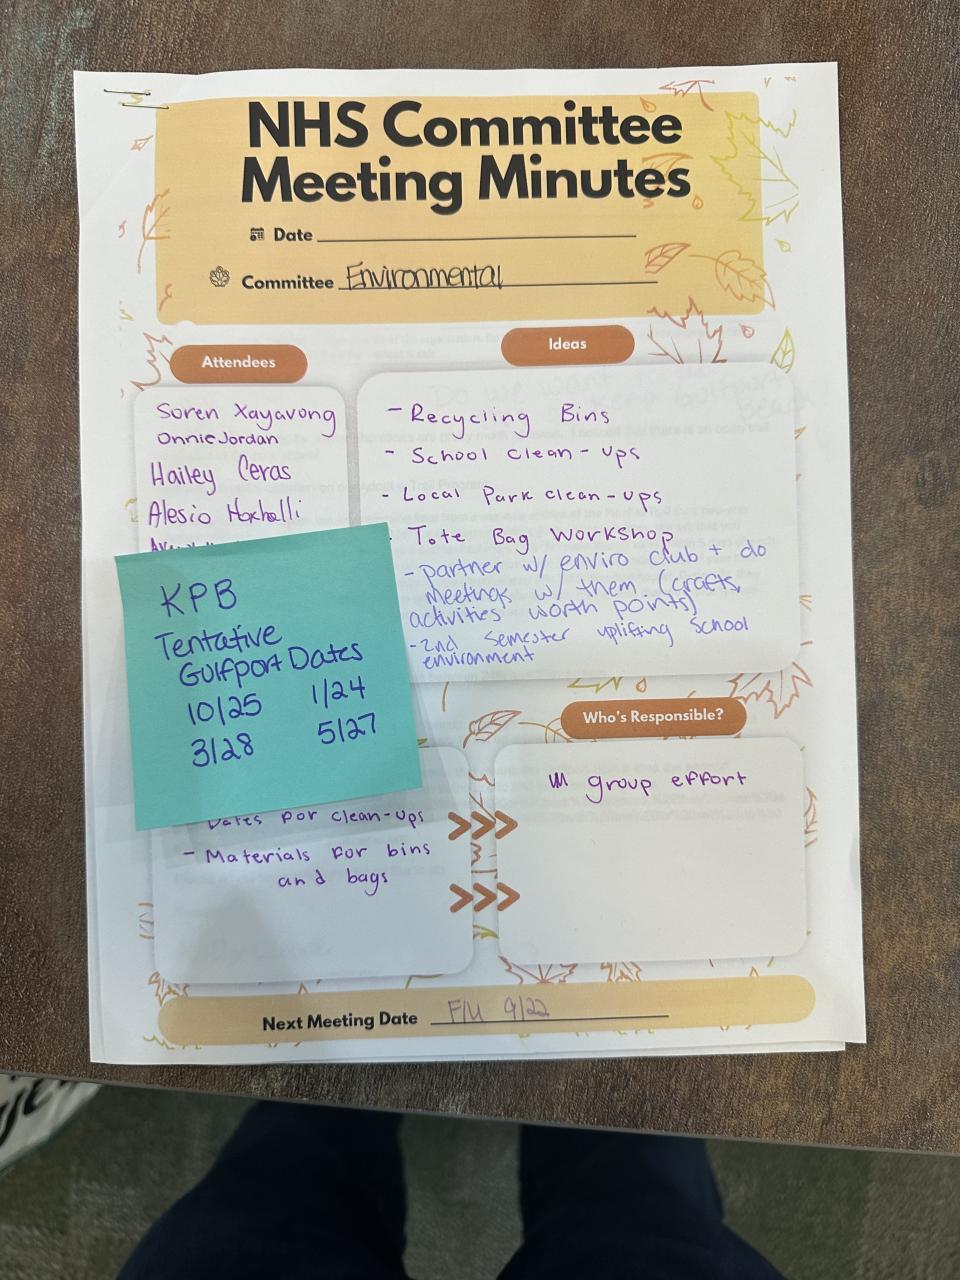 NHS Committee
Meeting Minutes
Date
Committee Environmental
Attendees
Soren Xayavong
Onnie Jordan
Hailey Ceras
Alesio Hoxhalli
Ideas
- Recycling Bins
- School clean-ups
- Local Park clean-ups
Tote Bag Workshop
- partner w/ enviro club + do
meetings w/ them (crafts,
activities worth points)
- 2nd semester uplifting school
environment
KPB
Tentative
Gulfport Dates
10/25 1/24
3/28 5/27
Dates for clean-ups
- Materials for bins
and bags
Who's Responsible?
group effort
Next Meeting Date F/U 9/22